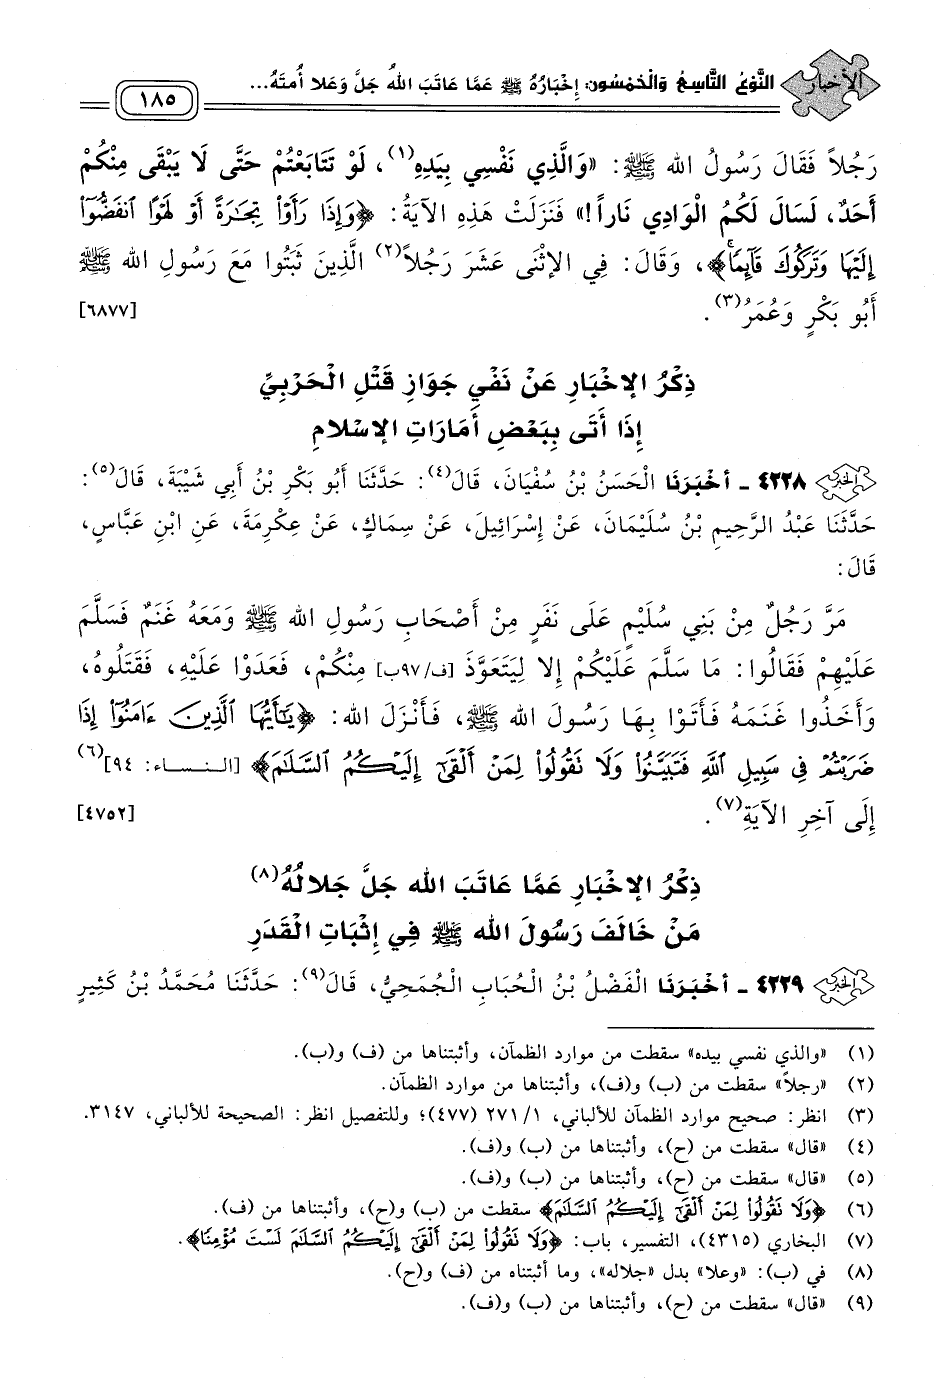 الأخبار
النَّوْعُ التَّاسِعُ وَالْخَمْسُون: إِخْبَارُهُ ﷺ عَمَّا عَاتَبَ اللهُ جَلَّ وَعَلا أُمتَهُ...
١٨٥
رَجُلاً فَقَالَ رَسُولُ الله ﷺ: «وَالَّذِي نَفْسِي بِيَدِهِ(١)، لَوْ تَتَابَعْتُمْ حَتَّى لَا يَبْقَى مِنْكُمْ
أَحَدٌ، لَسَالَ لَكُمُ الْوَادِي نَاراً!» فَنَزَلَتْ هَذِهِ الآيَةُ: ﴿وَإِذَا رَأَوْا تِجَارَةً أَوْ لَهْوًا انْفَضُّوا
إِلَيْهَا وَتَرَكُوكَ قَائِمًا﴾، وَقَالَ: فِي الاِثْنَى عَشَرَ رَجُلاً(٢) الَّذِينَ ثَبَتُوا مَعَ رَسُولِ الله ﷺ
أَبُو بَكْرٍ وَعُمَرُ(٣). [٦٨٧٧]
ذِكْرُ الإِخْبَارِ عَنْ نَفْيِ جَوَازِ قَتْلِ الْحَرْبِيِّ
إِذَا أَتَى بِبَعْضِ أَمَارَاتِ الإِسْلامِ
الخبر ٤٢٢٨ - أخْبَرَنَا الْحَسَنُ بْنُ سُفْيَانَ، قَالَ(٤): حَدَّثَنَا أَبُو بَكْرِ بْنُ أَبِي شَيْبَةَ، قَالَ(٥):
حَدَّثَنَا عَبْدُ الرَّحِيمِ بْنُ سُلَيْمَانَ، عَنْ إِسْرَائِيلَ، عَنْ سِمَاكٍ، عَنْ عِكْرِمَةَ، عَنِ ابْنِ عَبَّاسٍ،
قَالَ:
مَرَّ رَجُلٌ مِنْ بَنِي سُلَيْمٍ عَلَى نَفَرٍ مِنْ أَصْحَابِ رَسُولِ الله ﷺ وَمَعَهُ غَنَمٌ فَسَلَّمَ
عَلَيْهِمْ فَقَالُوا: مَا سَلَّمَ عَلَيْكُمْ إِلا لِيَتَعَوَّذَ [ف/٩٧ب] مِنْكُمْ، فَعَدَوْا عَلَيْهِ، فَقَتَلُوهُ،
وَأَخَذُوا غَنَمَهُ فَأَتَوْا بِهَا رَسُولَ الله ﷺ، فَأَنْزَلَ الله: ﴿يَٰأَيُّهَا الَّذِينَ ءَامَنُوا إِذَا
ضَرَبْتُمْ فِي سَبِيلِ اللَّهِ فَتَبَيَّنُوا وَلَا تَقُولُوا لِمَنْ أَلْقَىٰ إِلَيْكُمُ السَّلَٰمَ﴾ [النساء: ٩٤](٦)
إِلَى آخِرِ الآيَةِ(٧). [٤٧٥٢]
ذِكْرُ الإِخْبَارِ عَمَّا عَاتَبَ الله جَلَّ جَلالُهُ(٨)
مَنْ خَالَفَ رَسُولَ الله ﷺ فِي إِثْبَاتِ الْقَدَرِ
الخبر ٤٢٢٩ - أخْبَرَنَا الْفَضْلُ بْنُ الْحُبَابِ الْجُمَحِيُّ، قَالَ(٩): حَدَّثَنَا مُحَمَّدُ بْنُ كَثِيرٍ
(١) «والذي نفسي بيده» سقطت من موارد الظمآن، وأثبتناها من (ف) و(ب).
(٢) «رجلاً» سقطت من (ب) و(ف)، وأثبتناها من موارد الظمآن.
(٣) انظر: صحيح موارد الظمآن للألباني، ١/ ٢٧١ (٤٧٧)؛ وللتفصيل انظر: الصحيحة للألباني، ٣١٤٧.
(٤) «قال» سقطت من (ح)، وأثبتناها من (ب) و(ف).
(٥) «قال» سقطت من (ح)، وأثبتناها من (ب) و(ف).
(٦) ﴿وَلَا تَقُولُوا لِمَنْ أَلْقَىٰ إِلَيْكُمُ السَّلَٰمَ﴾ سقطت من (ب) و(ح)، وأثبتناها من (ف).
(٧) البخاري (٤٣١٥)، التفسير، باب: ﴿وَلَا تَقُولُوا لِمَنْ أَلْقَىٰ إِلَيْكُمُ السَّلَٰمَ لَسْتَ مُؤْمِنًا﴾.
(٨) في (ب): «وعلا» بدل «جلاله»، وما أثبتناه من (ف) و(ح).
(٩) «قال» سقطت من (ح)، وأثبتناها من (ب) و(ف).